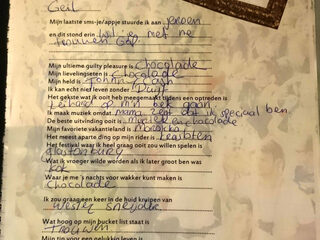 Geil
Mijn laatste sms-je/appje stuurde ik aan Jeroen
en dit stond erin wil je met me
trouwen Geil
Mijn ultieme guilty pleasure is Chocolade
Mijn lievelingseten is Chocolade
Mijn held is Johnny Cash
Ik kan echt niet leven zonder
Het gekste wat ik ooit heb meegemaakt tijdens een optreden is
keihard op mn bek gaan
Ik maak muziek omdat mama zegt dat ik speciaal ben.
De beste uitvinding ooit is chocolade
Mijn favoriete vakantieland is Marokko
Het meest aparte ding op mijn rider is
Het festival waar ik heel graag ooit zou willen spelen is
Glastonbury
Wat ik vroeger wilde worden als ik later groot ben was
Kok
Waar je me 's nachts voor wakker kunt maken is
Chocolade
Ik zou graag een keer in de huid kruipen van
Wesley Sneijder
Wat hoog op mijn bucket list staat is
Trouwen
Mijn tip voor een gelukkig leven is